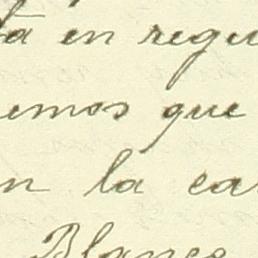 ta en regu
emos que
n la ca
Blanco